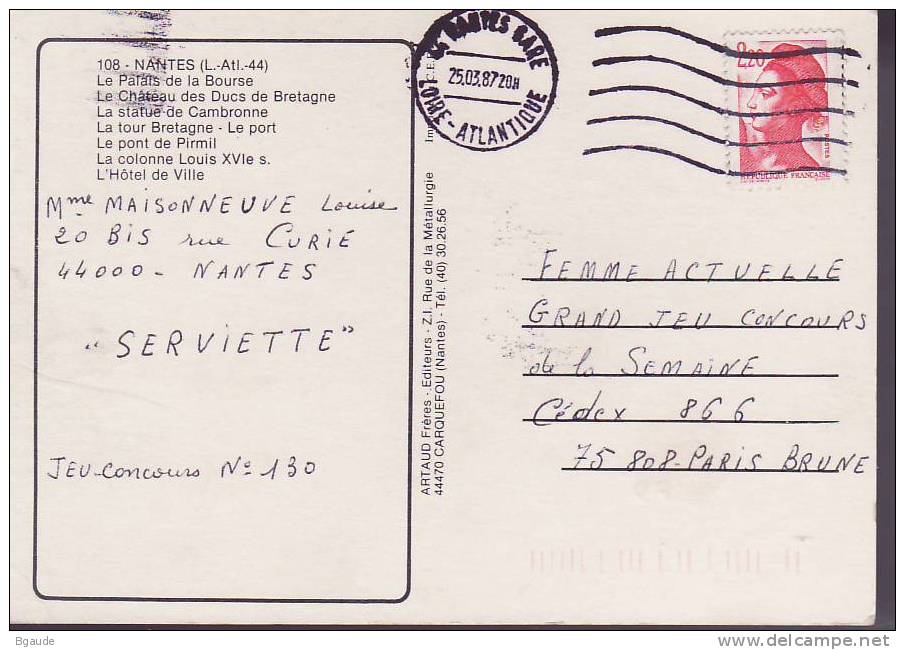 108 - NANTES (L.-Atl.-44)
Le Palais de la Bourse
Le Château des Ducs de Bretagne
La statue de Cambronne
La tour Bretagne - Le port
Le pont de Pirmil
La colonne Louis XVIe s.
L'Hôtel de Ville
Mme MAISONNEUVE Louise
20 BIS rue CURIE
44000 - NANTES
"SERVIETTE"
JEU-concours N° 130
ARTAUD Frères - Editeurs - Z.I. Rue de la Métallurgie
44470 CARQUEFOU (Nantes) - Tél. (40) 30.26.56
NANTES GARE
25.03.87 20H
LOIRE-ATLANTIQUE
2,20
POSTES
REPUBLIQUE FRANÇAISE
FEMME ACTUELLE
GRAND JEU CONCOURS
de la SEMAINE
Cédex 866
75 808-PARIS BRUNE
Bgaude
www.delcampe.net